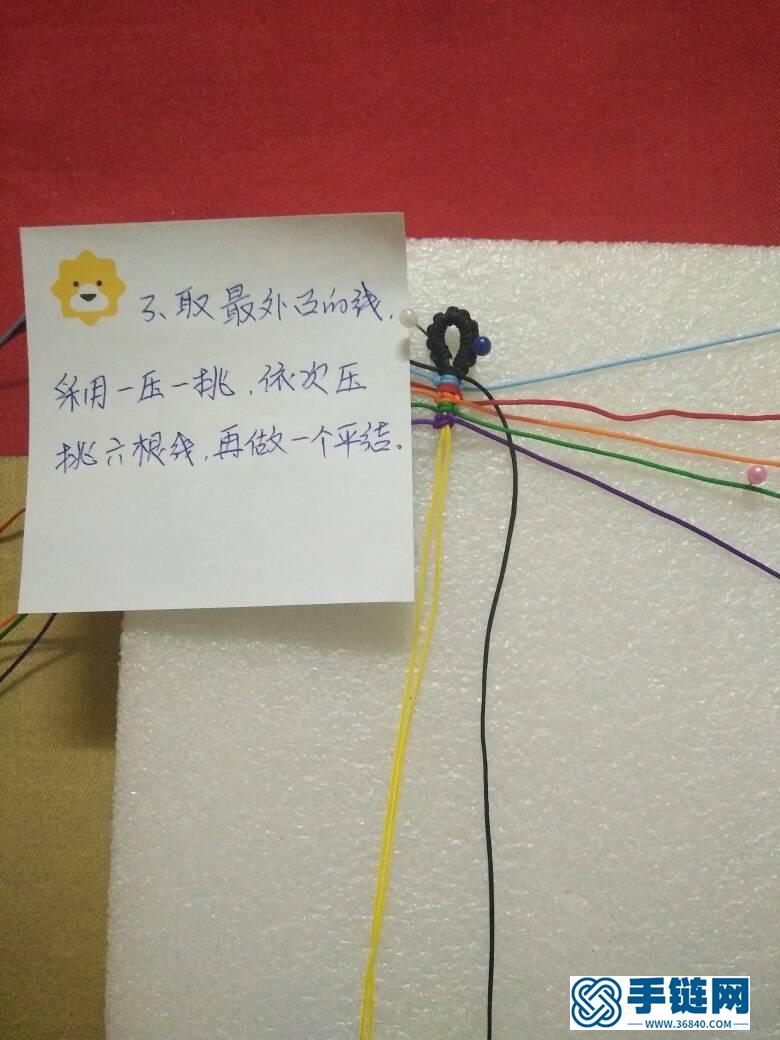 3、取最外面的线,
采用一压一挑,依次压
挑六根线,再做一个平结。
手链网
WWW.36840.COM